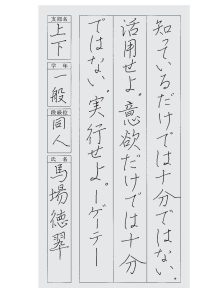 知っているだけでは十分ではない。
活用せよ。意欲だけでは十分
ではない。実行せよ。ーゲーテー
支部名
上下
学年
一般
段級位
同人
氏名
馬場徳翠